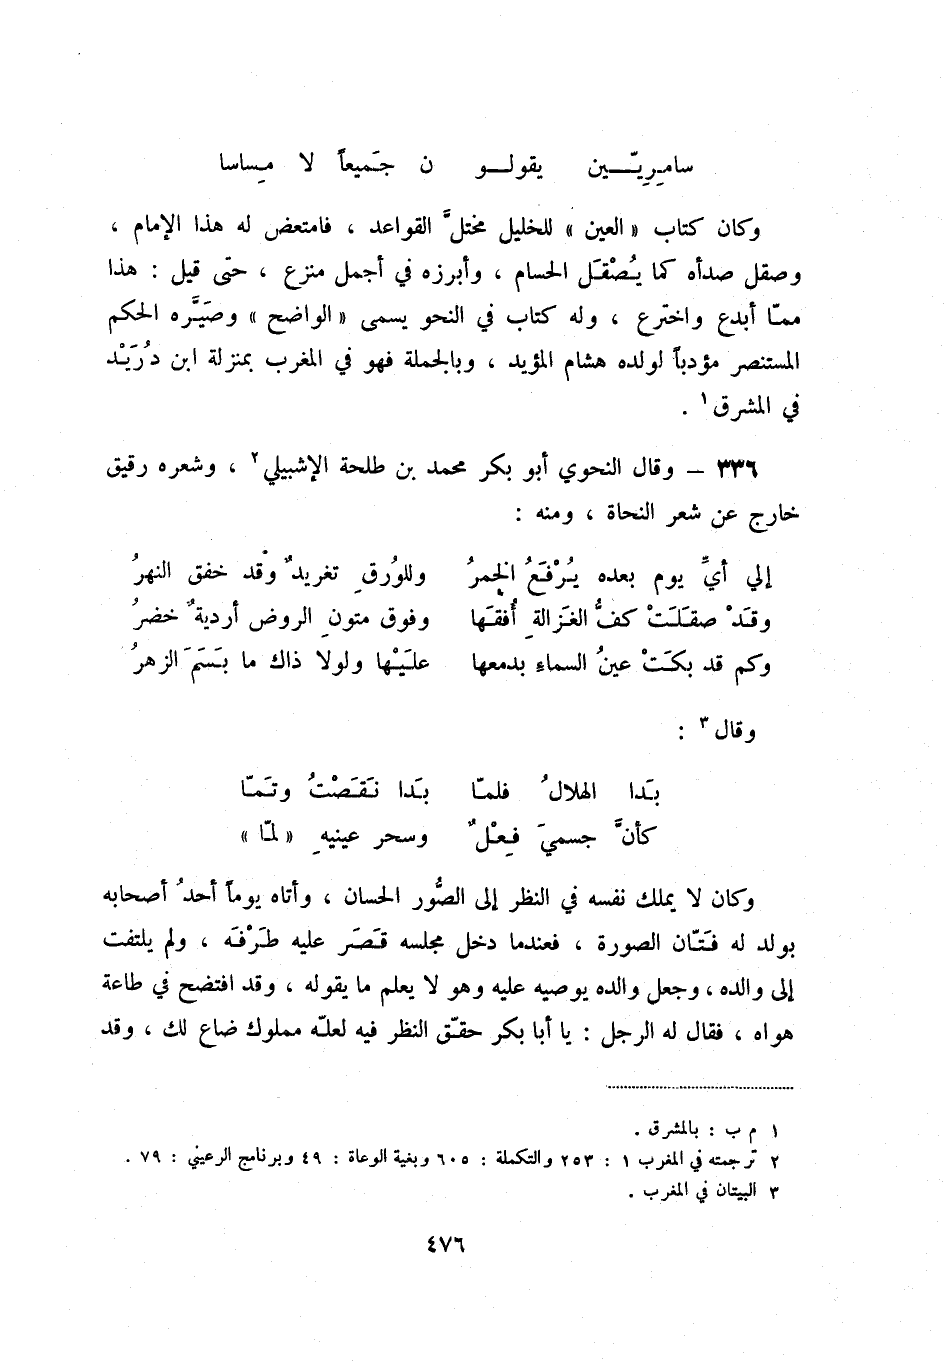 سامِرِيّــين يقولــو ن جَميعاً لا مِساسا
وكان كتاب « العين » للخليل مختلَّ القواعد ، فامتعض له هذا الإمام ،
وصقل صدأه كما يُصْقَل الحسام ، وأبرزه في أجمل منزع ، حتّى قيل : هذا
ممّا أبدع واخترع ، وله كتاب في النحو يسمى « الواضح » وصَيَّره الحكم
المستنصر مؤدباً لولده هشام المؤيد ، وبالجملة فهو في المغرب بمنزلة ابن دُرَيْد
في المشرق ١ .
٣٣٦ – وقال النحوي أبو بكر محمد بن طلحة الإشبيلي ٢ ، وشعره رقيق
خارج عن شعر النحاة ، ومنه :
إلي أيِّ يوم بعده يُرْفَعُ الخمرُ وللوُرقِ تغريدٌ وقد خفق النهرُ
وقَدْ صقَلَتْ كفُّ الغَزالةِ أُفقَها وفوق متونِ الروض أرديةٌ خضرُ
وكم قد بكَتْ عينُ السماء بدمعها علَيْها ولولا ذاك ما بَسَمَ الزهرُ
وقال ٣ :
بَدا الهلالُ فلمّا بَدا نَقَصْتُ وتَمّا
كأنَّ جسميَ فِعْلٌ وسحر عينيهِ « لمّا »
وكان لا يملك نفسه في النظر إلى الصُّور الحسان ، وأتاه يوماً أحدُ أصحابه
بولد له فَتّان الصورة ، فعندما دخل مجلسه قَصَر عليه طَرْفَه ، ولم يلتفت
إلى والده ، وجعل والده يوصيه عليه وهو لا يعلم ما يقوله ، وقد افتضح في طاعة
هواه ، فقال له الرجل : يا أبا بكر حقّق النظر فيه لعلّه مملوك ضاع لك ، وقد
١ م ب : بالمشرق .
٢ ترجمته في المغرب ١ : ٢٥٣ والتكملة : ٦٠٥ وبغية الوعاة : ٤٩ وبرنامج الرعيني : ٧٩ .
٣ البيتان في المغرب .
٤٧٦